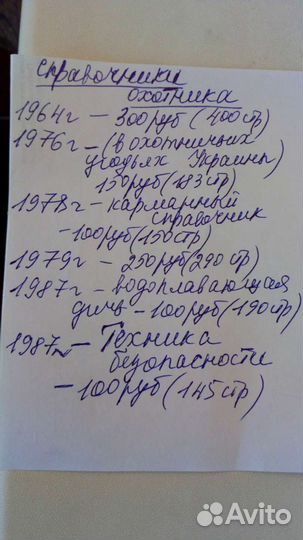 справочники
охотника
1964г - 300руб (400стр)
1976г - (в охотничьих
угодьях Украины)
150руб (183стр)
1978г - карманный
справочник
- 100руб (150стр)
1979г - 250руб (290стр)
1987г - водоплавающая
дичь - 100руб (190стр)
1987г - Техника
безопасности
- 100руб (145стр)
Avito